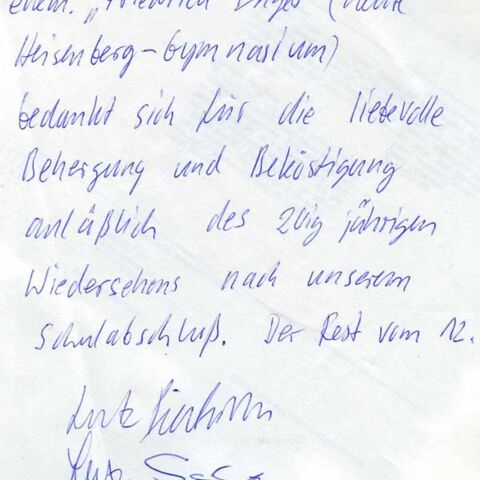 ehem. „Friedrich Engels (heute
Heisenberg-Gymnasium)
bedankt sich für die liebevolle
Behergung und Beköstigung
anläßlich des 20ig jährigen
Wiedersehens nach unserem
Schulabschluß. Der Rest vom 12.
Lutz